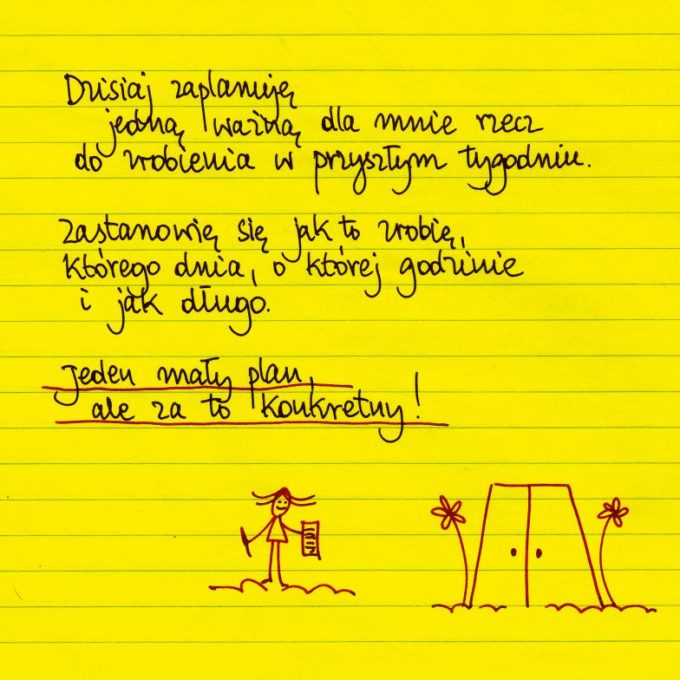 Dzisiaj zaplanuję
jedną ważną dla mnie rzecz
do zrobienia w przyszłym tygodniu.
Zastanowię się jak to zrobię,
którego dnia, o której godzinie
i jak długo.
Jeden mały plan,
ale za to konkretny!